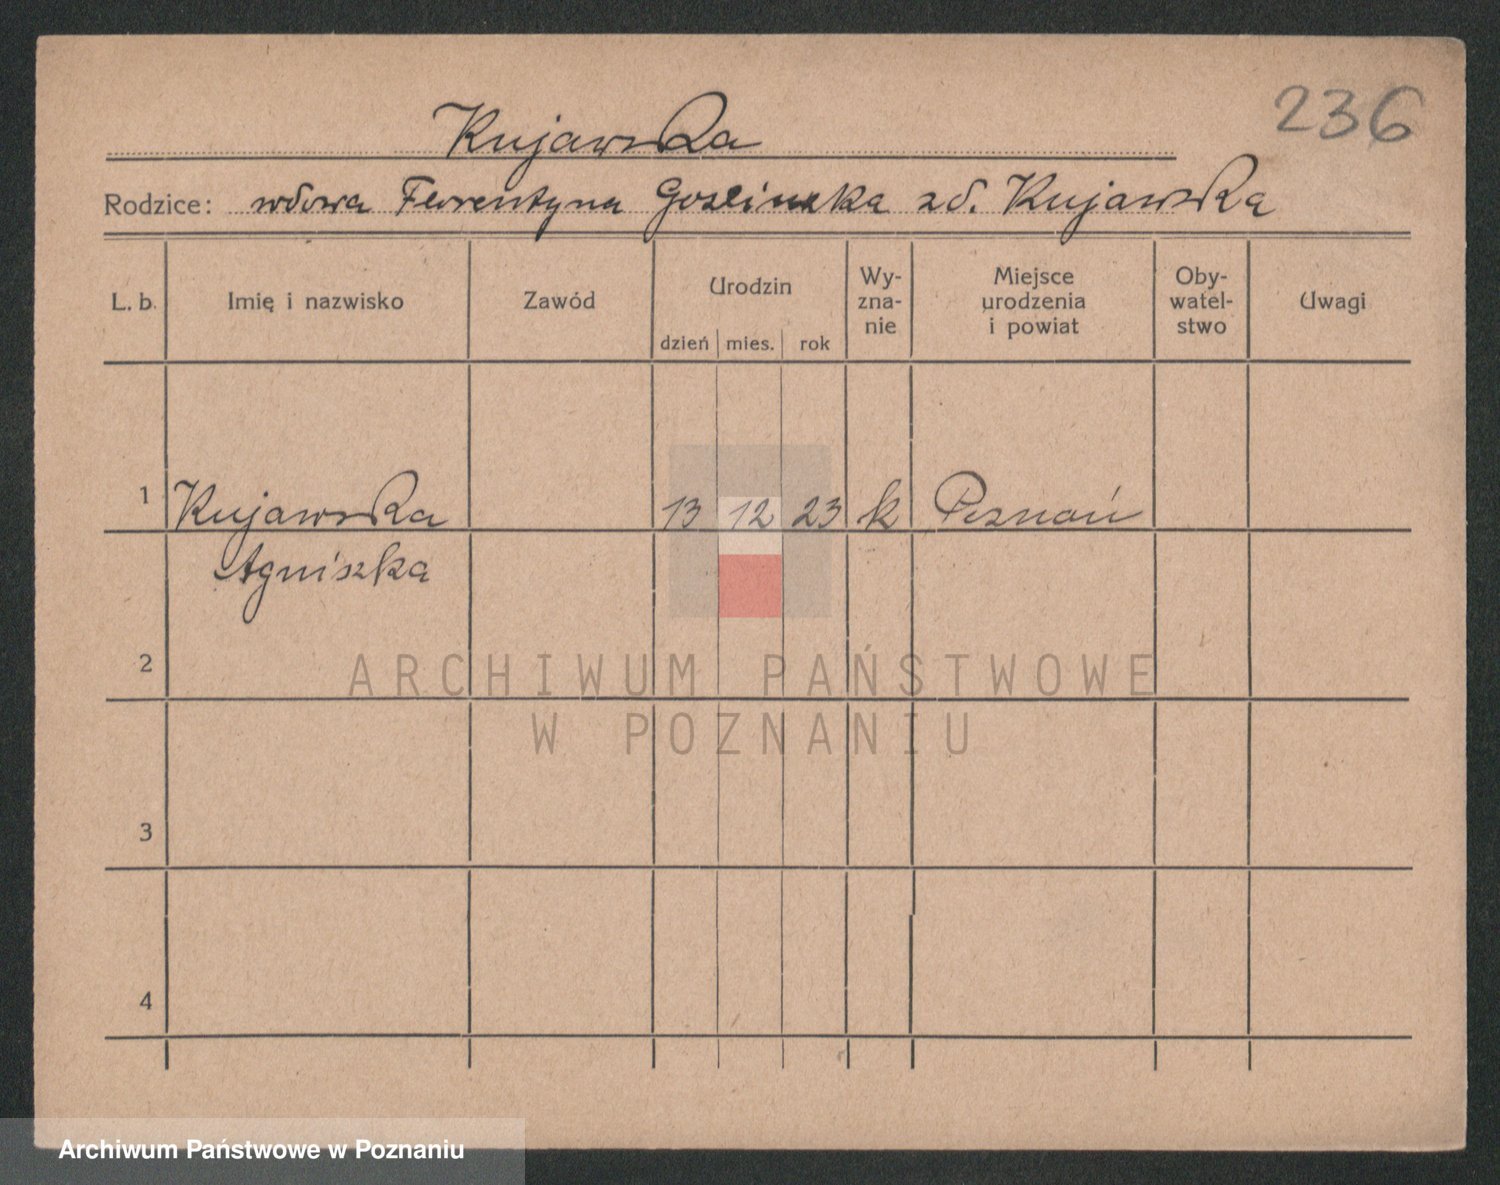 236
Kujawska
Rodzice: wdowa Florentyna Goslinska zd. Kujawska
L. b. Imię i nazwisko Zawód Urodzin dzień mies. rok Wy-zna-nie Miejsce urodzenia i powiat Oby-watel-stwo Uwagi
1 Kujawska 13 12 23 k Poznań
Agniszka
2
ARCHIWUM PAŃSTWOWE
W POZNANIU
3
4
Archiwum Państwowe w Poznaniu